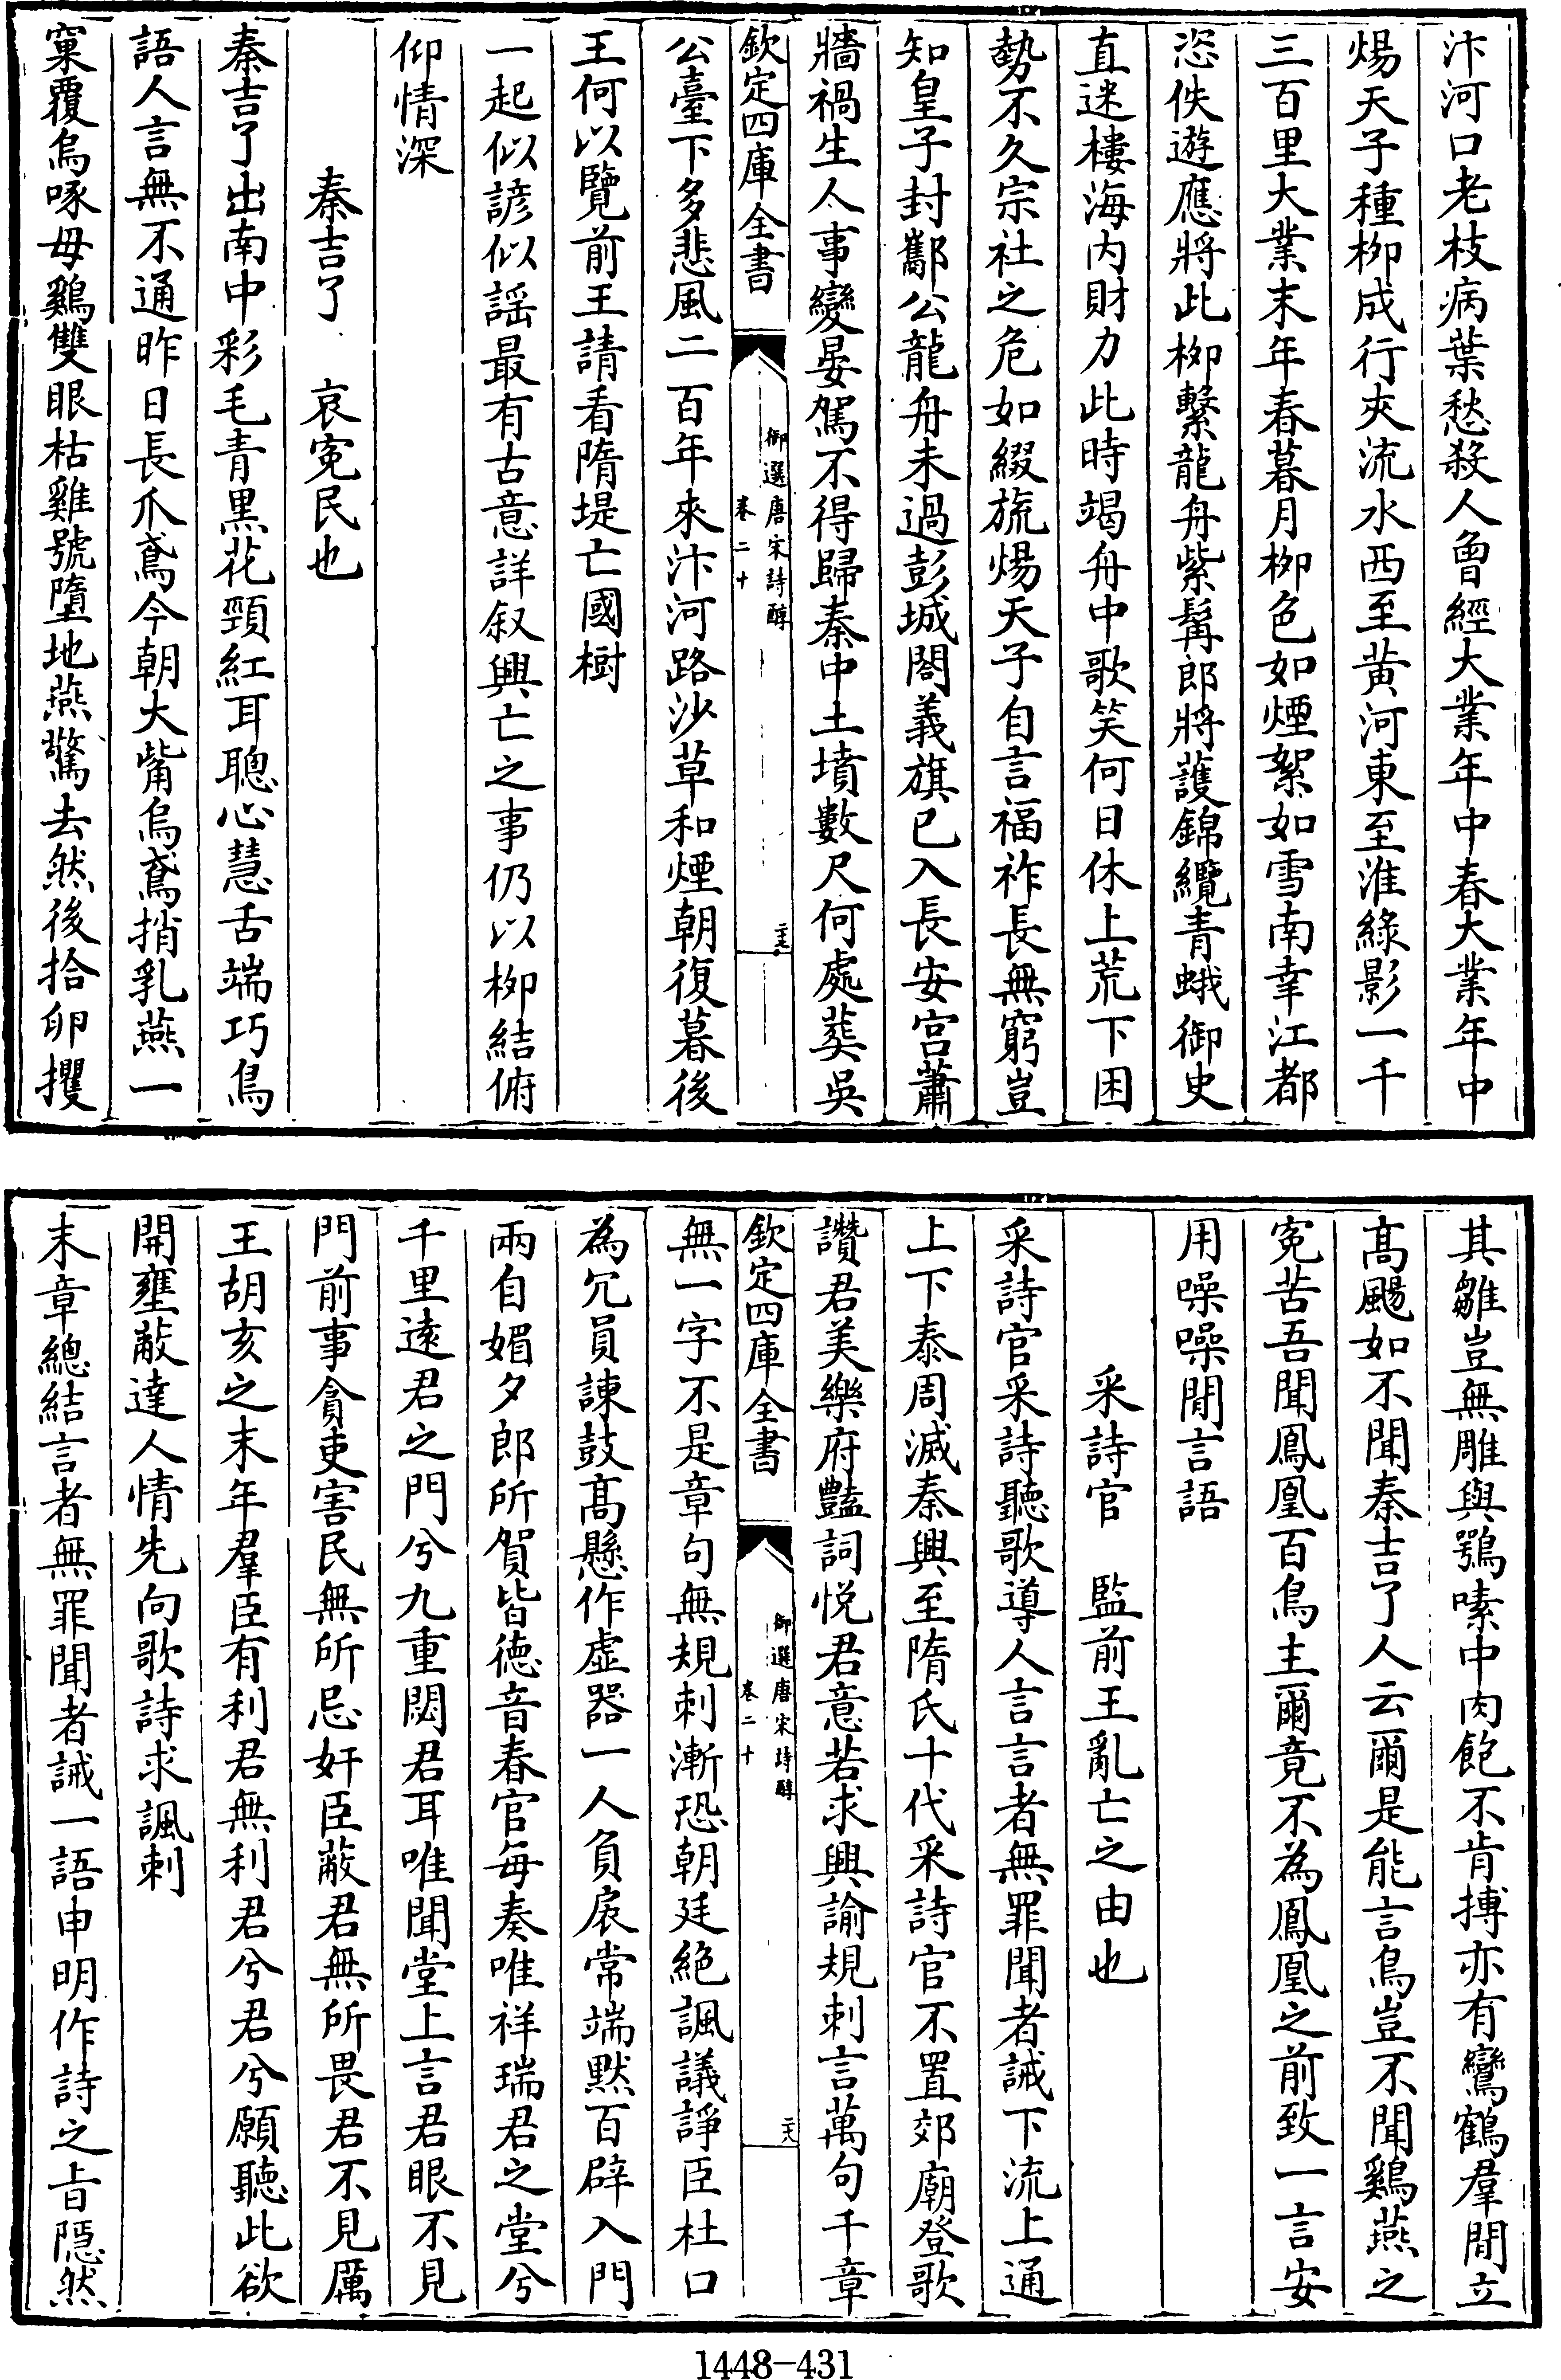 汴河口老枝病葉愁殺人曾經大業年中春大業年中
煬天子種柳成行夾流水西至黄河東至淮綠影一千
三百里大業末年春暮月柳色如煙絮如雪南幸江都
恣佚遊應將此柳繫龍舟紫髯郎將䕶錦纜青蛾御史
直迷樓海内財力此時竭舟中歌笑何日休上荒下困
勢不久宗社之危如綴旒煬天子自言福祚長無窮豈
知皇子封酅公龍舟未過彭城閤義旗已入長安宫蕭
牆禍生人事變晏駕不得歸秦中土墳數尺何處葬吳
欽定四庫全書
御選唐宋詩醇
卷二十
二十七
公臺下多悲風二百年來汴河路沙草和煙朝復暮後
王何以覽前王請看隋堤亡國樹
一起似諺似謡最有古意詳叙興亡之事仍以柳結俯
仰情深
秦吉了 哀寃民也
秦吉了出南中彩毛青黑花頸紅耳聰心慧舌端巧鳥
語人言無不通昨日長爪鳶今朝大觜烏鳶捎乳燕一
窠覆烏啄母鷄雙眼枯雞號墮地燕驚去然後拾卵攫
其雛豈無雕與鶚嗉中肉飽不肯搏亦有鸞鶴羣閒立
髙颺如不聞秦吉了人云爾是能言鳥豈不聞鷄燕之
寃苦吾聞鳳凰百鳥主爾竟不為鳳凰之前致一言安
用噪噪閒言語
采詩官 監前王亂亡之由也
采詩官采詩聽歌導人言言者無罪聞者誡下流上通
上下泰周滅秦興至隋氏十代采詩官不置郊廟登歌
讚君美樂府豔詞悦君意若求興諭規刺言萬句千章
欽定四庫全書
御選唐宋詩醇
卷二十
二十八
無一字不是章句無規刺漸恐朝廷絶諷議諍臣杜口
為冗員諫鼓髙懸作虚器一人負扆常端黙百辟入門
兩自媚夕郎所賀皆徳音春官每奏唯祥瑞君之堂兮
千里逺君之門兮九重閟君耳唯聞堂上言君眼不見
門前事貪吏害民無所忌奸臣蔽君無所畏君不見厲
王胡亥之末年羣臣有利君無利君兮君兮願聽此欲
開壅蔽達人情先向歌詩求諷刺
末章總結言者無罪聞者誡一語申明作詩之旨隱然
1448-431